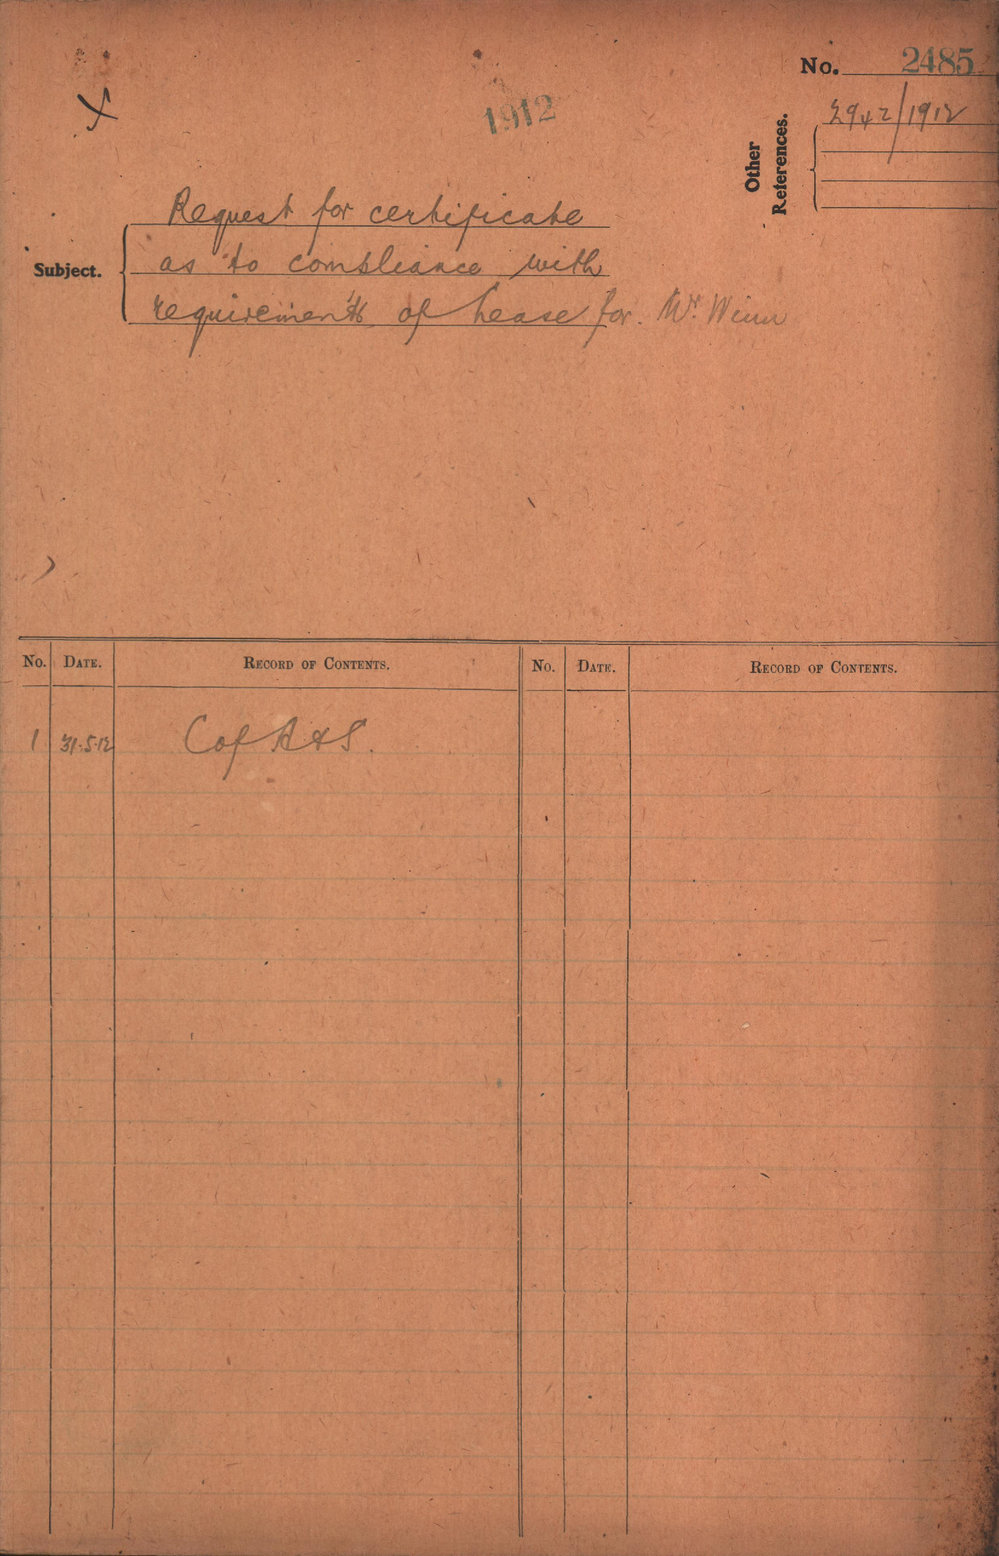 No. 2485
1912
Other References.
2942/1912
Subject.
Request for certificate
as to compliance with
requirements of Lease for Mr. Winn
No. DATE. RECORD OF CONTENTS. No. DATE. RECORD OF CONTENTS.
1 31.5.12 C of A & S.